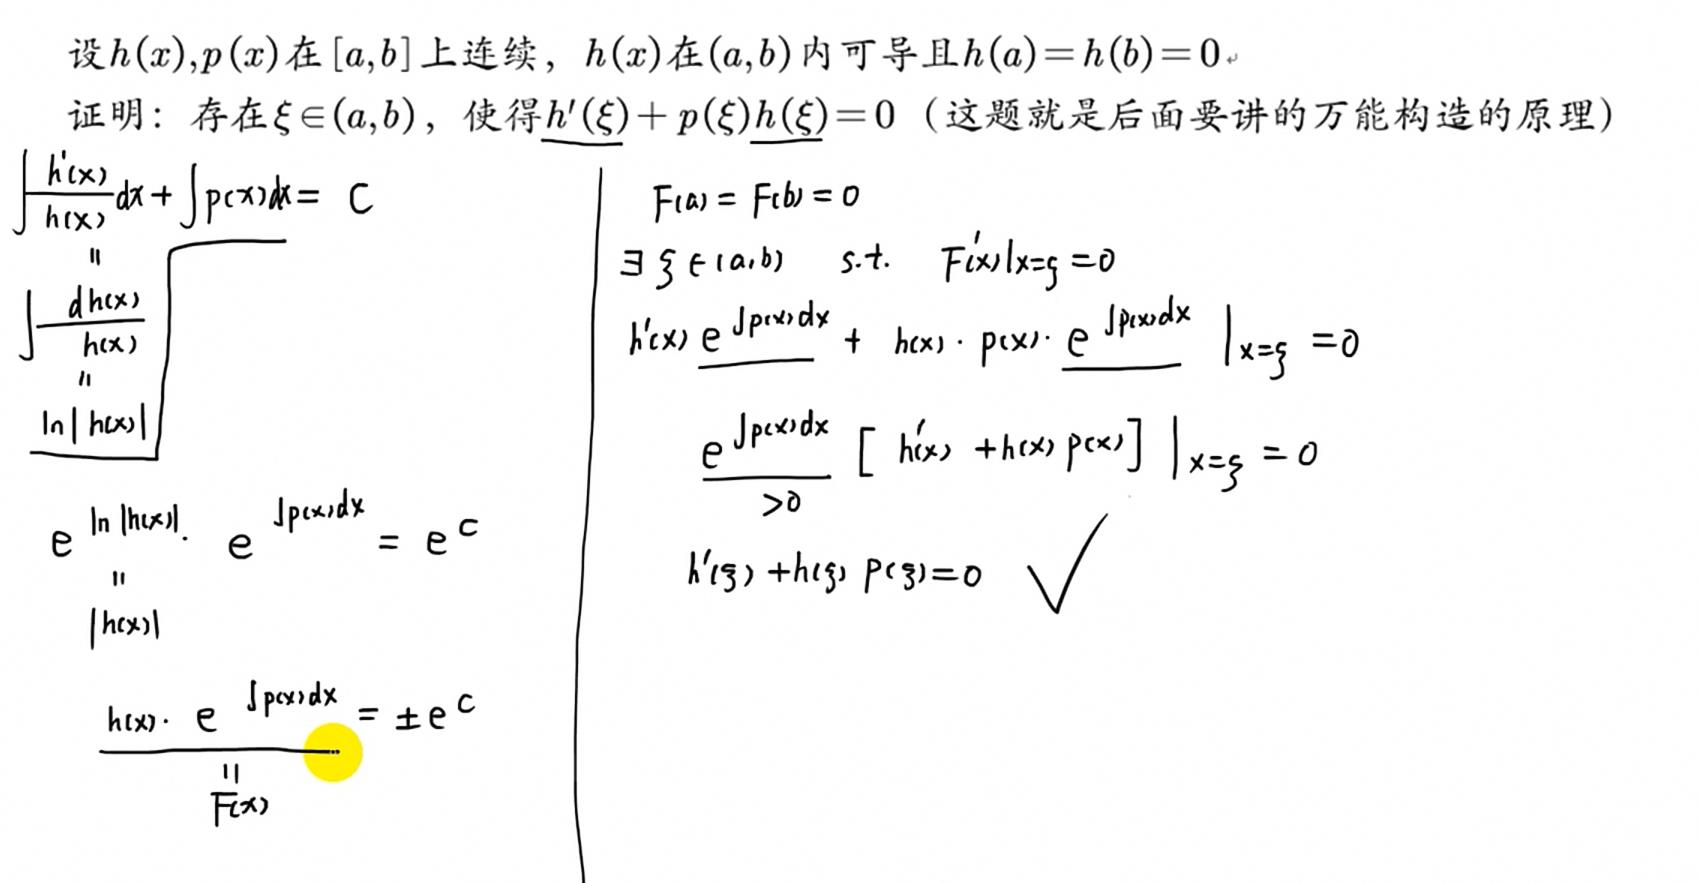 设h(x),p(x)在[a,b]上连续，h(x)在(a,b)内可导且h(a)=h(b)=0
证明：存在ξ∈(a,b)，使得h′(ξ)+p(ξ)h(ξ)=0（这题就是后面要讲的万能构造的原理）
∫ h′(x)/h(x) dx + ∫p(x)dx = C
=
∫ dh(x)/h(x)
=
ln|h(x)|
e^{ln|h(x)|} · e^{∫p(x)dx} = e^C
=
|h(x)|
h(x) · e^{∫p(x)dx} = ±e^C
=
F(x)
F(a) = F(b) = 0
∃ ξ∈(a,b) s.t. F′(x)|x=ξ = 0
h′(x) e^{∫p(x)dx} + h(x) · p(x) · e^{∫p(x)dx} |x=ξ = 0
e^{∫p(x)dx} [ h′(x) + h(x) p(x) ] |x=ξ = 0
>0
h′(ξ) + h(ξ) p(ξ) = 0 ✓